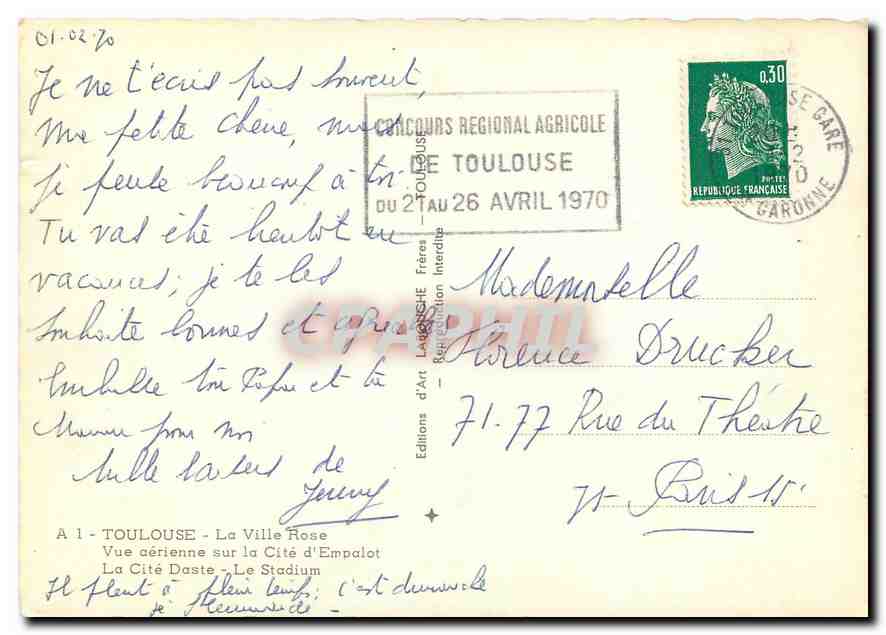 01.02.70
Je ne t'écris pas souvent,
ma petite chérie, mais
je pense beaucoup à toi.
Tu vas être bientôt en
vacances, je te les
souhaite bonnes et agréables
Embrasse ton Papa et ta
Maman pour moi
Mille baisers de
Jenny
A 1 - TOULOUSE - La Ville Rose
Vue aérienne sur la Cité d'Empalot
La Cité Daste - Le Stadium
Il pleut à plein temps, c'est dimanche
je
CONCOURS REGIONAL AGRICOLE
DE TOULOUSE
DU 21 AU 26 AVRIL 1970
Editions d'Art LABOUCHE Frères - TOULOUSE
- Reproduction Interdite -
0,30
POSTES
REPUBLIQUE FRANÇAISE
GARE
GARONNE
Mademoiselle
Florence Drucker
71-77 Rue du Théâtre
75 - Paris 15
CPAPHIL